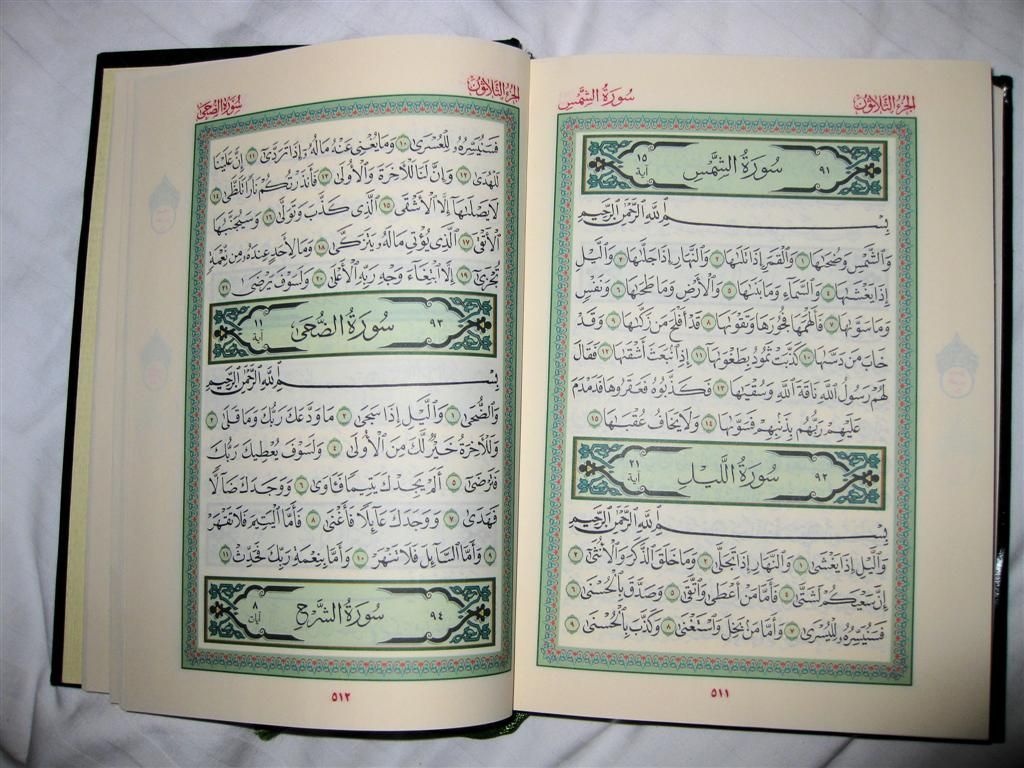 الجزء الثلاثون سورة الشمس
٩١ سُورَةُ الشَّمْسِ ١٥ آية
بِسْمِ ٱللَّهِ ٱلرَّحْمَٰنِ ٱلرَّحِيمِ
وَٱلشَّمْسِ وَضُحَىٰهَا ١ وَٱلْقَمَرِ إِذَا تَلَىٰهَا ٢ وَٱلنَّهَارِ إِذَا جَلَّىٰهَا ٣ وَٱلَّيْلِ
إِذَا يَغْشَىٰهَا ٤ وَٱلسَّمَآءِ وَمَا بَنَىٰهَا ٥ وَٱلْأَرْضِ وَمَا طَحَىٰهَا ٦ وَنَفْسٍ
وَمَا سَوَّىٰهَا ٧ فَأَلْهَمَهَا فُجُورَهَا وَتَقْوَىٰهَا ٨ قَدْ أَفْلَحَ مَن زَكَّىٰهَا ٩ وَقَدْ
خَابَ مَن دَسَّىٰهَا ١٠ كَذَّبَتْ ثَمُودُ بِطَغْوَىٰهَآ ١١ إِذِ ٱنۢبَعَثَ أَشْقَىٰهَا ١٢ فَقَالَ
لَهُمْ رَسُولُ ٱللَّهِ نَاقَةَ ٱللَّهِ وَسُقْيَٰهَا ١٣ فَكَذَّبُوهُ فَعَقَرُوهَا فَدَمْدَمَ
عَلَيْهِمْ رَبُّهُم بِذَنۢبِهِمْ فَسَوَّىٰهَا ١٤ وَلَا يَخَافُ عُقْبَٰهَا ١٥
٩٢ سُورَةُ اللَّيْلِ ٢١ آية
بِسْمِ ٱللَّهِ ٱلرَّحْمَٰنِ ٱلرَّحِيمِ
وَٱلَّيْلِ إِذَا يَغْشَىٰ ١ وَٱلنَّهَارِ إِذَا تَجَلَّىٰ ٢ وَمَا خَلَقَ ٱلذَّكَرَ وَٱلْأُنثَىٰٓ ٣
إِنَّ سَعْيَكُمْ لَشَتَّىٰ ٤ فَأَمَّا مَنْ أَعْطَىٰ وَٱتَّقَىٰ ٥ وَصَدَّقَ بِٱلْحُسْنَىٰ ٦
فَسَنُيَسِّرُهُۥ لِلْيُسْرَىٰ ٧ وَأَمَّا مَنۢ بَخِلَ وَٱسْتَغْنَىٰ ٨ وَكَذَّبَ بِٱلْحُسْنَىٰ ٩
٥١١
الجزء الثلاثون سورة الضحى
فَسَنُيَسِّرُهُۥ لِلْعُسْرَىٰ ١٠ وَمَا يُغْنِى عَنْهُ مَالُهُۥٓ إِذَا تَرَدَّىٰٓ ١١ إِنَّ عَلَيْنَا
لَلْهُدَىٰ ١٢ وَإِنَّ لَنَا لَلْآخِرَةَ وَٱلْأُولَىٰ ١٣ فَأَنذَرْتُكُمْ نَارًا تَلَظَّىٰ ١٤
لَا يَصْلَىٰهَآ إِلَّا ٱلْأَشْقَى ١٥ ٱلَّذِى كَذَّبَ وَتَوَلَّىٰ ١٦ وَسَيُجَنَّبُهَا
ٱلْأَتْقَى ١٧ ٱلَّذِى يُؤْتِى مَالَهُۥ يَتَزَكَّىٰ ١٨ وَمَا لِأَحَدٍ عِندَهُۥ مِن نِّعْمَةٍ
تُجْزَىٰٓ ١٩ إِلَّا ٱبْتِغَآءَ وَجْهِ رَبِّهِ ٱلْأَعْلَىٰ ٢٠ وَلَسَوْفَ يَرْضَىٰ ٢١
٩٣ سُورَةُ الضُّحَىٰ ١١ آية
بِسْمِ ٱللَّهِ ٱلرَّحْمَٰنِ ٱلرَّحِيمِ
وَٱلضُّحَىٰ ١ وَٱلَّيْلِ إِذَا سَجَىٰ ٢ مَا وَدَّعَكَ رَبُّكَ وَمَا قَلَىٰ ٣
وَلَلْآخِرَةُ خَيْرٌ لَّكَ مِنَ ٱلْأُولَىٰ ٤ وَلَسَوْفَ يُعْطِيكَ رَبُّكَ
فَتَرْضَىٰٓ ٥ أَلَمْ يَجِدْكَ يَتِيمًا فَـَٔاوَىٰ ٦ وَوَجَدَكَ ضَآلًّا
فَهَدَىٰ ٧ وَوَجَدَكَ عَآئِلًا فَأَغْنَىٰ ٨ فَأَمَّا ٱلْيَتِيمَ فَلَا تَقْهَرْ
٩ وَأَمَّا ٱلسَّآئِلَ فَلَا تَنْهَرْ ١٠ وَأَمَّا بِنِعْمَةِ رَبِّكَ فَحَدِّثْ ١١
٩٤ سُورَةُ الشَّرْحِ ٨ آيات
٥١٢